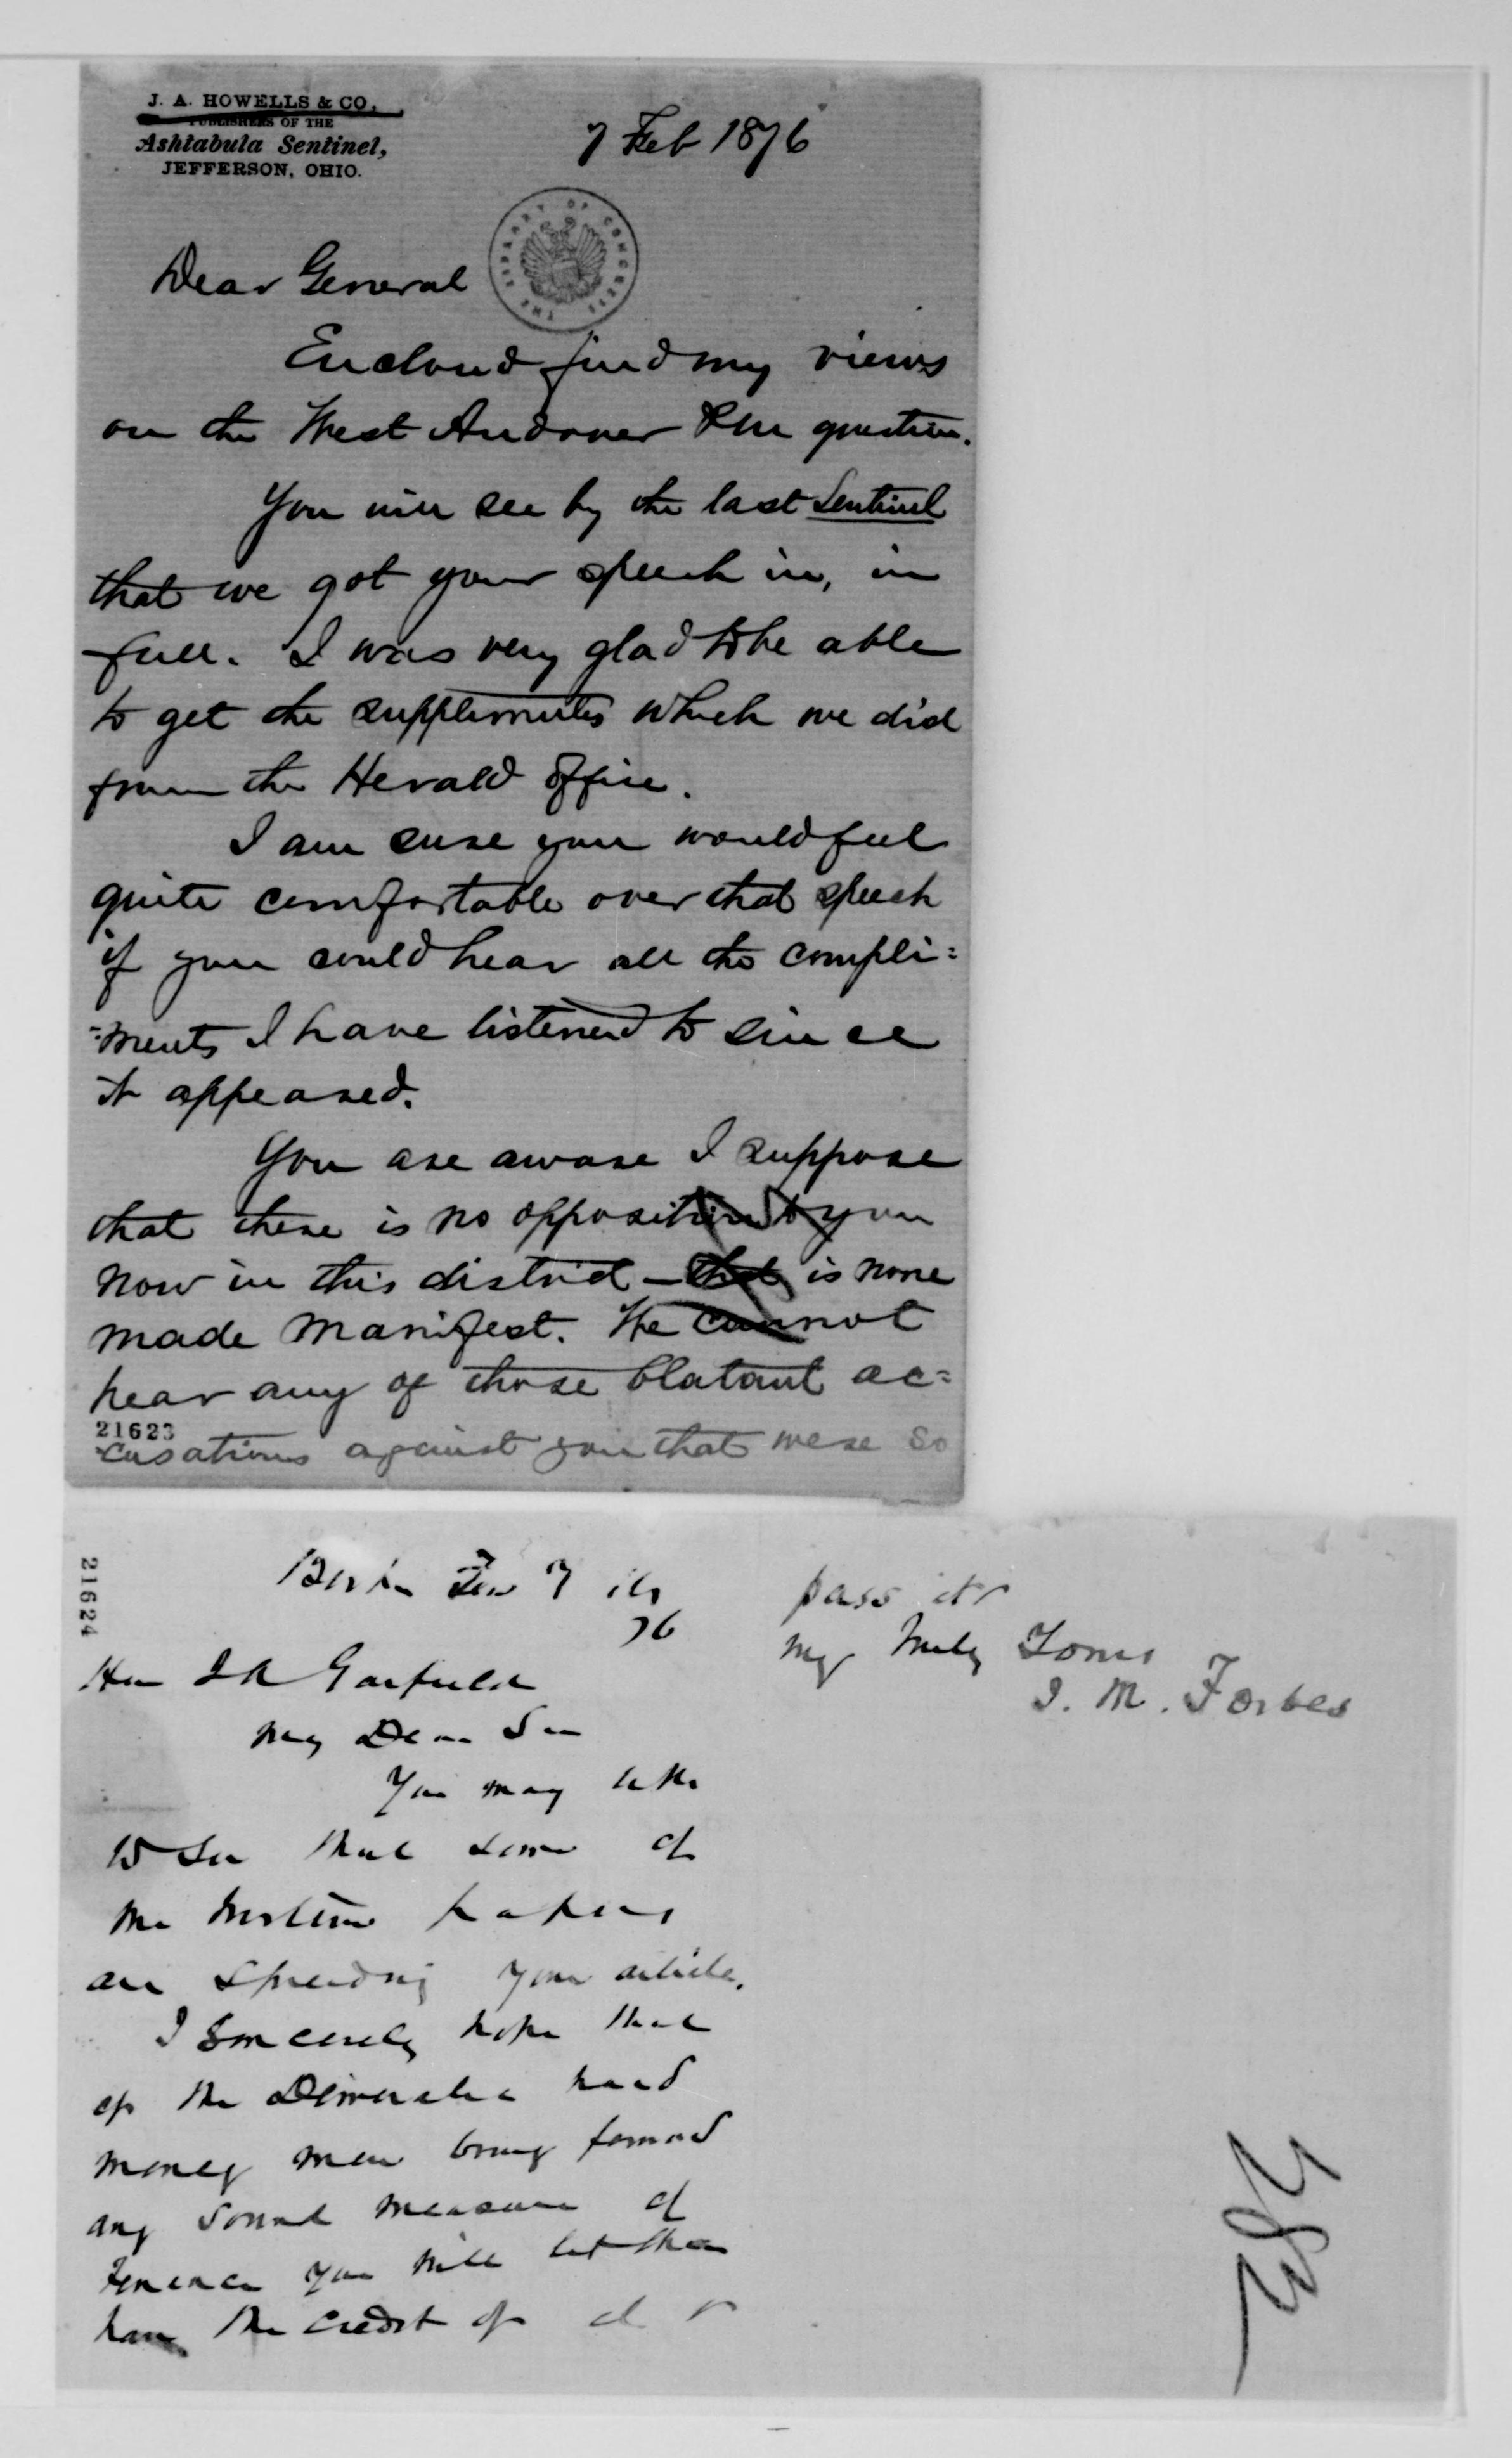 J. A. HOWELLS & CO.,
PUBLISHERS OF THE
Ashtabula Sentinel,
JEFFERSON, OHIO.
7 Feb 1876
THE LIBRARY OF CONGRESS
Dear General
Enclosed find my views
on the West Andover P.M. question.
You will see by the last Sentinel
that we got your speech in, in
full. I was very glad to be able
to get the supplements which we did
from the Herald office.
I am sure you would feel
quite comfortable over that speech
if you could hear all the compli=
=ments I have listened to since
it appeared.
You are aware I suppose
that there is no opposition to you
now in this district — that is none
made manifest. We cannot
hear any of those blatant ac=
21623
cusations against you that were so
21624
Boston Feb 7
76
Hon J A Garfield
My Dear Sir
You may like
to see that some of
the Western papers
are spreading your article.
I sincerely hope that
if the Democratic hard
money men bring forward
any sound measure of
Finance you will let them
have the credit of
pass it
my Truly Yours
J. M. Forbes